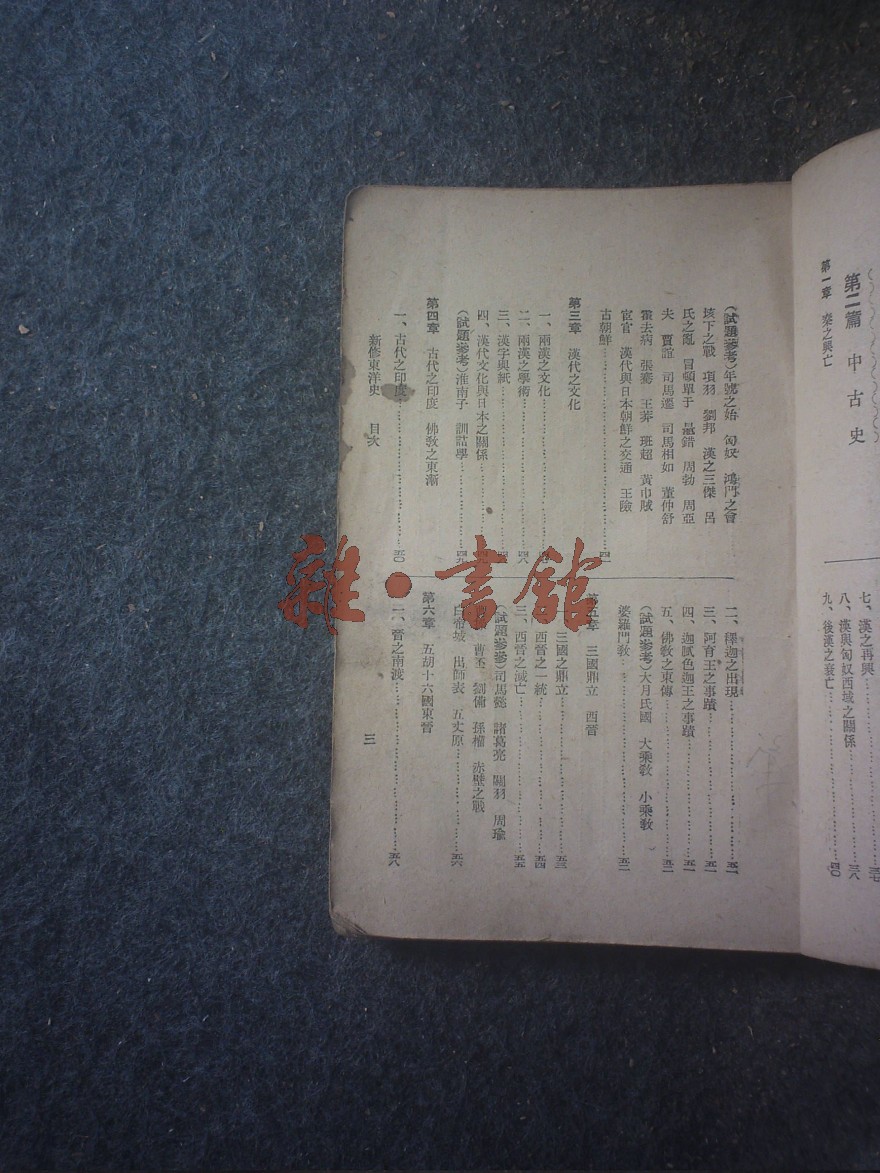 第二篇 中古史
第一章 秦之興亡
七、漢之再興
八、漢與匈奴西域之關係……三八
九、後漢之衰亡……四〇
(試題參考)年號之始 匈奴 鴻門之會
垓下之戰 項羽 劉邦 漢之三傑 呂
氏之亂 冒頓單于 鼂錯 周勃 周亞
夫 賈誼 司馬遷 司馬相如 董仲舒
霍去病 張騫 王莽 班超 黃巾賊
宦官 漢代與日本朝鮮之交通 王險
古朝鮮……四一
第三章 漢代之文化
一、兩漢之文化
二、兩漢之學術……四八
三、漢字與紙
四、漢代文化與日本之關係
(試題參考)淮南子 訓詁學……四九
第四章 古代之印度 佛教之東漸
一、古代之印度……五〇
二、釋迦之出現……五一
三、阿育王之事蹟……五一
四、迦膩色迦王之事蹟……五一
五、佛教之東傳……五二
(試題參考)大月氏國 大乘教 小乘教
婆羅門教……五二
第五章 三國鼎立 西晉
三國之鼎立……五三
西晉之一統……五四
三、西晉之滅亡……五五
(試題參參)司馬懿 諸葛亮 關羽 周瑜
曹丕 劉備 孫權 赤壁之戰
白帝城 出師表 五丈原……五六
第六章 五胡十六國東晉
一、晉之南渡……五八
新修東洋史 目次
三
雜·書館